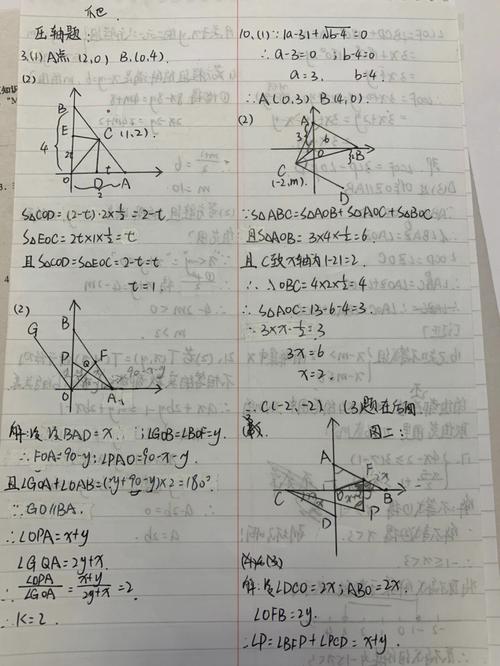 压轴题:
3.(1) A点 (2,0) B.(0,4).
(2)
B
E
C (1,2)
4
2t
t
O
D
A
2
S△COD=(2-t)·2×½=2-t
S△EOC=2t×1×½=t
且S△COD=S△EOC=2-t=t
t=1.
(2)
G
B
P
F
Q
O
A
解:设∠BAD=x. ;∠GOB=∠BOF=y.
∴FOA=90-y;∠PAO=90-x-y
∴GO∥BA.
∴∠OPA=x+y
∠GQA=2y+x.
∴K=2.
10.(1):|a-3|+√b-4=0
∴a-3=0 ;b-4=0
a=3. b=4;
∴A(0.3) B(4,0).
(2)
A
3
6
O
B
C
(-2,m).
D
∵S△ABC=S△AOB+S△AOC+S△BOC
且S△AOB=3×4×½=6
且C到x轴为|-2|=2.
∴△OBC=4×2×½=4
∴S△AOC=13-6-4=3.
∴3×x·½=3
3x=6
x=2.
∴C(-2,-2) (3)题在后面
图二:
A
F
2x
C
O
B
D
P
解:设∠DCO=2x;ABO=2x.
∠OFB=2y.
∴∠P=∠BFP+∠PCD=x+y.